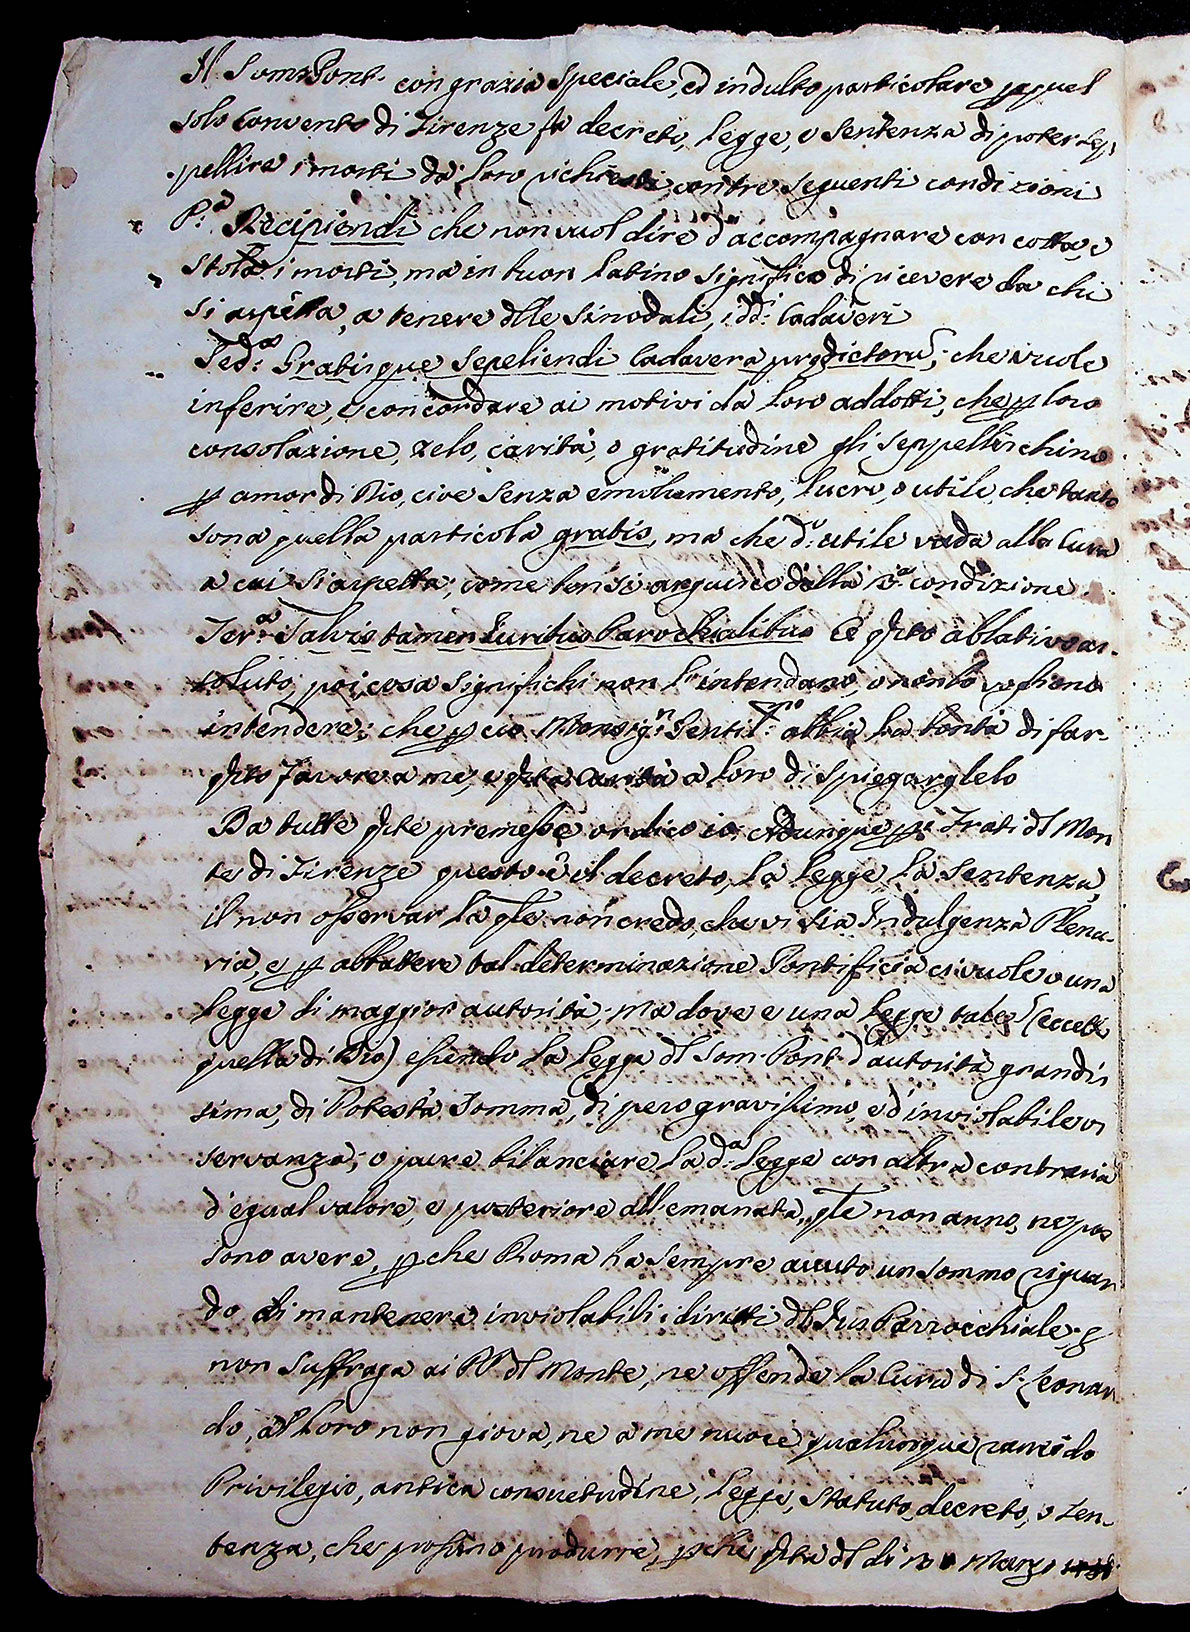 Il Som: Pont. con grazia speciale, ed indulto particolare p quel
solo Convento di Firenze fà decreto, legge, e sentenza di poter sep
pellire i morti da loro richiesti con tre seguenti condizioni
P.a Recipiendi che non vuol dire d'accompagnare con cotta, e
stola i morti, ma in buon latino significa di ricevere da chi
si aspetta, a tenere dlle sinodali, i dd.i Cadaveri
Sed.a Gratisque sepeliendi Cadavera predictorũ; che vuole
inferire, e concordare ai motivi da loro addotti, che p loro
consolazione, zelo, carità, o gratitudine gli seppellischino
p amor di Dio, cioè senza emolumento, lucro, o utile, che tanto
sona quella particola gratis, ma che d.o utile vada alla Cura
a cui si aspetta; come ben si arguisce dalla 3.a condizione
Ter.a Salvis tamen Iuribus Parochialibus E qsto ablativo as-
soluto, poi, cosa significhi non l'intendano, o non lo voglieno
intendere; che p cio Monsig.r Gentil.mo abbia la bontà di far-
qsto favore a me, e qsta Carità a loro di spiegarglelo
Da tutte qste premesse or dico io: Adunque p i Frati dl Mon
te di Firenze questo è il decreto, la legge, la sentenza,
il non osservar la qle non credo, che vi sia Indulgenza Plena-
ria, e p abbattere tal determinazione Pontificia ci vuole o una
legge di maggior autorità; ma dove è una legge tale? (eccett
quella di Dio) essendo la legge dl Som. Pont. d'autorità grandis
sima, di Potestà somma, di peso gravissimo, e d'inviolabile os
servanza; o pure bilanciare la d.a legge con altra contraria
d'egual valore, e posteriore all'emanata, qle non anno, ne pos
sono avere, p che Roma ha sempre avuto un sommo riguar
do di mantenere inviolabili i diritti dl Ius Parrocchiale;
non suffraga ai PP. dl Monte, ne offende la Cura di S. Leonar
do, a loro non giova, ne a me nuoce qualunque rancido
Privilegio, antica consuetudine, legge, statuto, decreto, o sen-
tenza, che possino produrre, pche qsta dl dì 13 Marzo